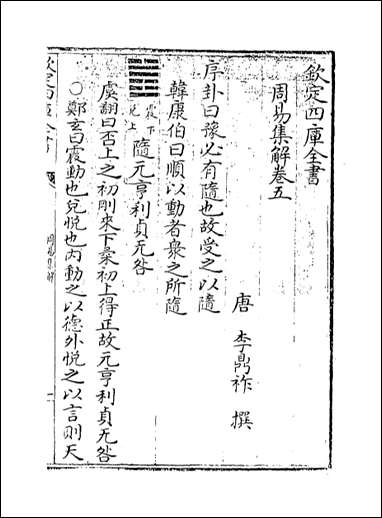 欽定四庫全書
周易集解卷五
唐 李鼎祚 撰
序卦曰豫必有隨也故受之以隨
韓康伯曰順以動者衆之所隨
震下
兌上
隨元亨利貞无咎
虞翻曰否上之初剛來下柔初上得正故元亨利貞无咎
○鄭玄曰震動也兌悅也內動之以德外悅之以言則天
周易集解